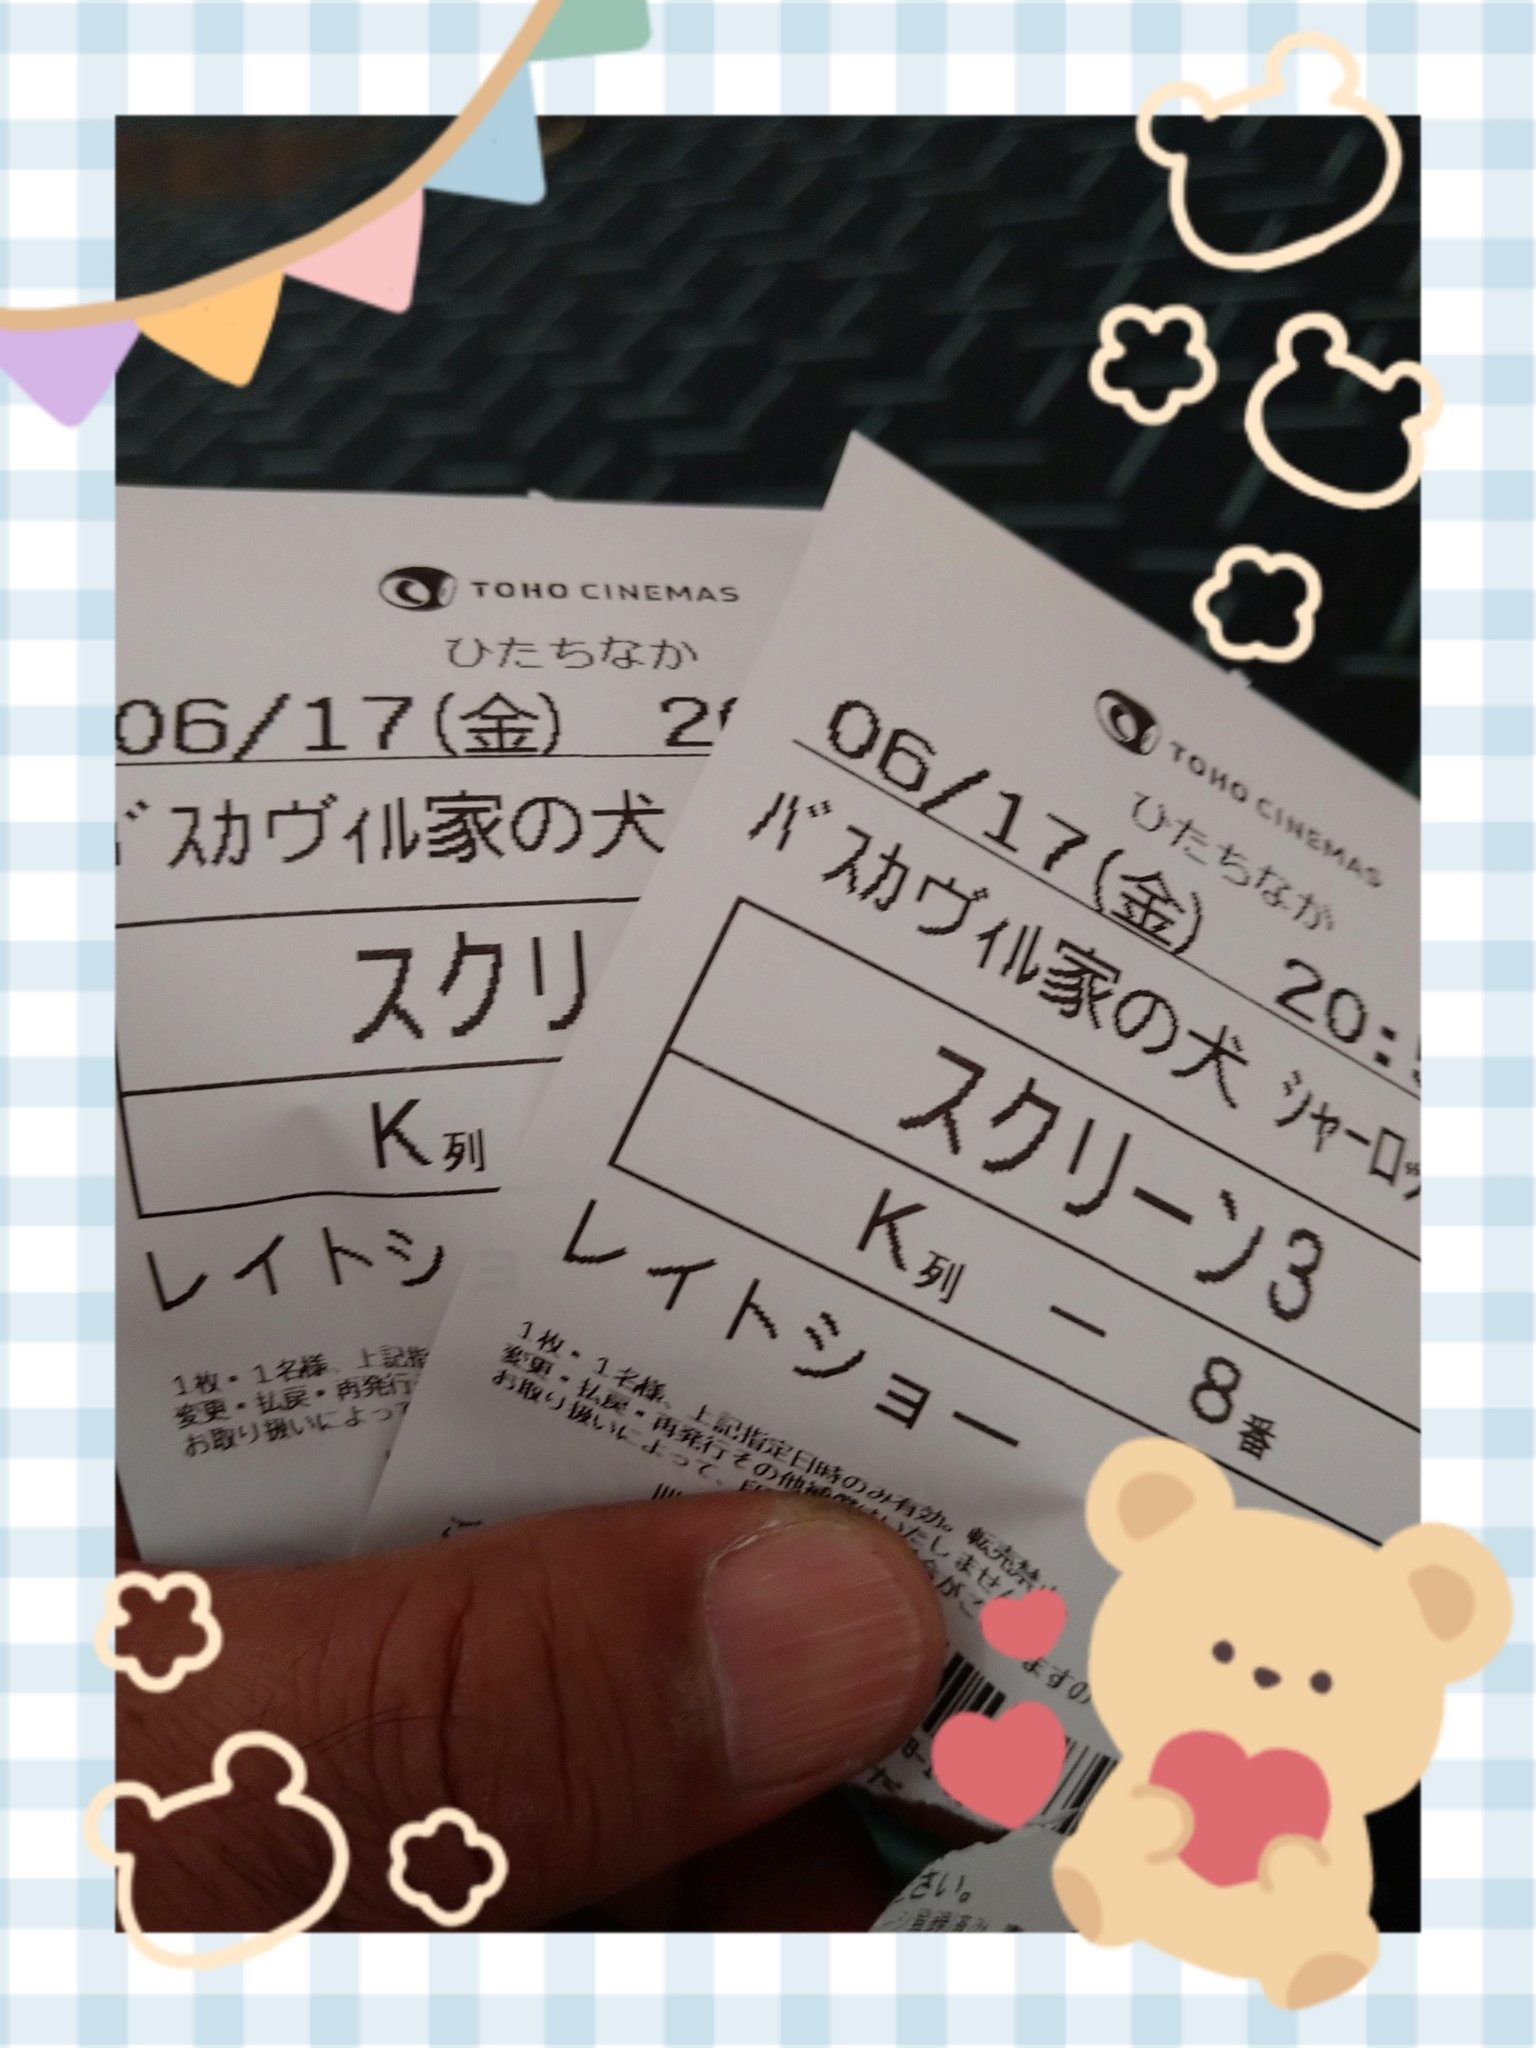 TOHO CINEMAS
ひたちなか
06/17(金)
バスカヴィル家の犬
スクリ
K列
レイトシ
1枚・1名様、上記指
変更・払戻・再発行
お取り扱いによって
TOHO CINEMAS
ひたちなか
06/17(金) 20:
バスカヴィル家の犬 シャーロッ
スクリーン3
K列 - 8番
レイトショー
1枚・1名様、上記指定日時のみ有効。転売禁
変更・払戻・再発行その他補償はいたしません
お取り扱いによって、
ますの
さい。